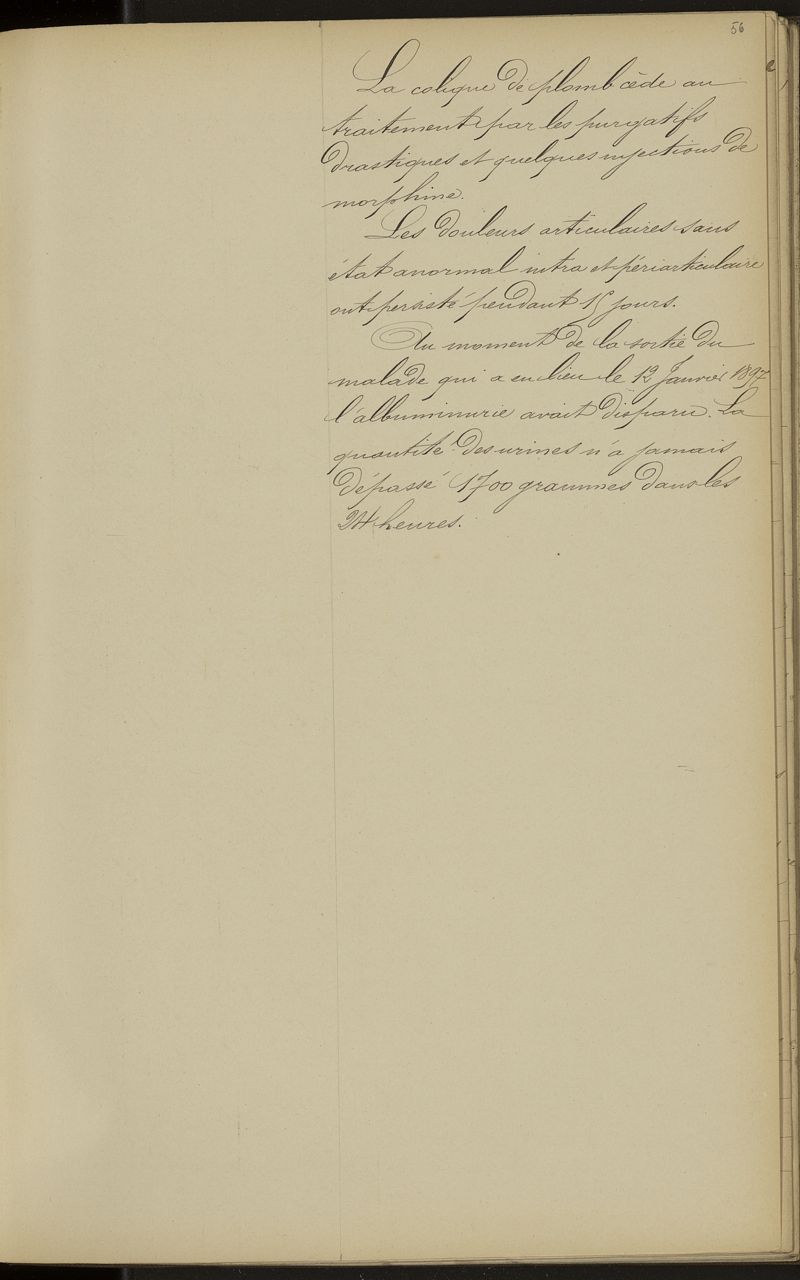 56
La colique de plomb cède au
traitement par les purgatifs
drastiques et quelques injections de
morphine.
Les douleurs articulaires sans
état anormal intra et périarticulaire
ont persisté pendant 15 jours.
Au moment de la sortie du
malade qui a eu lieu le 12 Janvier 1897
l'albuminurie avait disparu. La
quantité des urines n'a jamais
dépassé 1700 grammes dans les
24 heures.